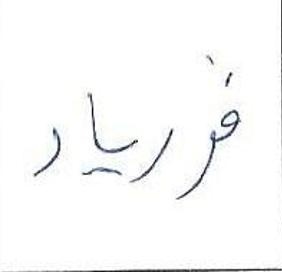 فرریاد